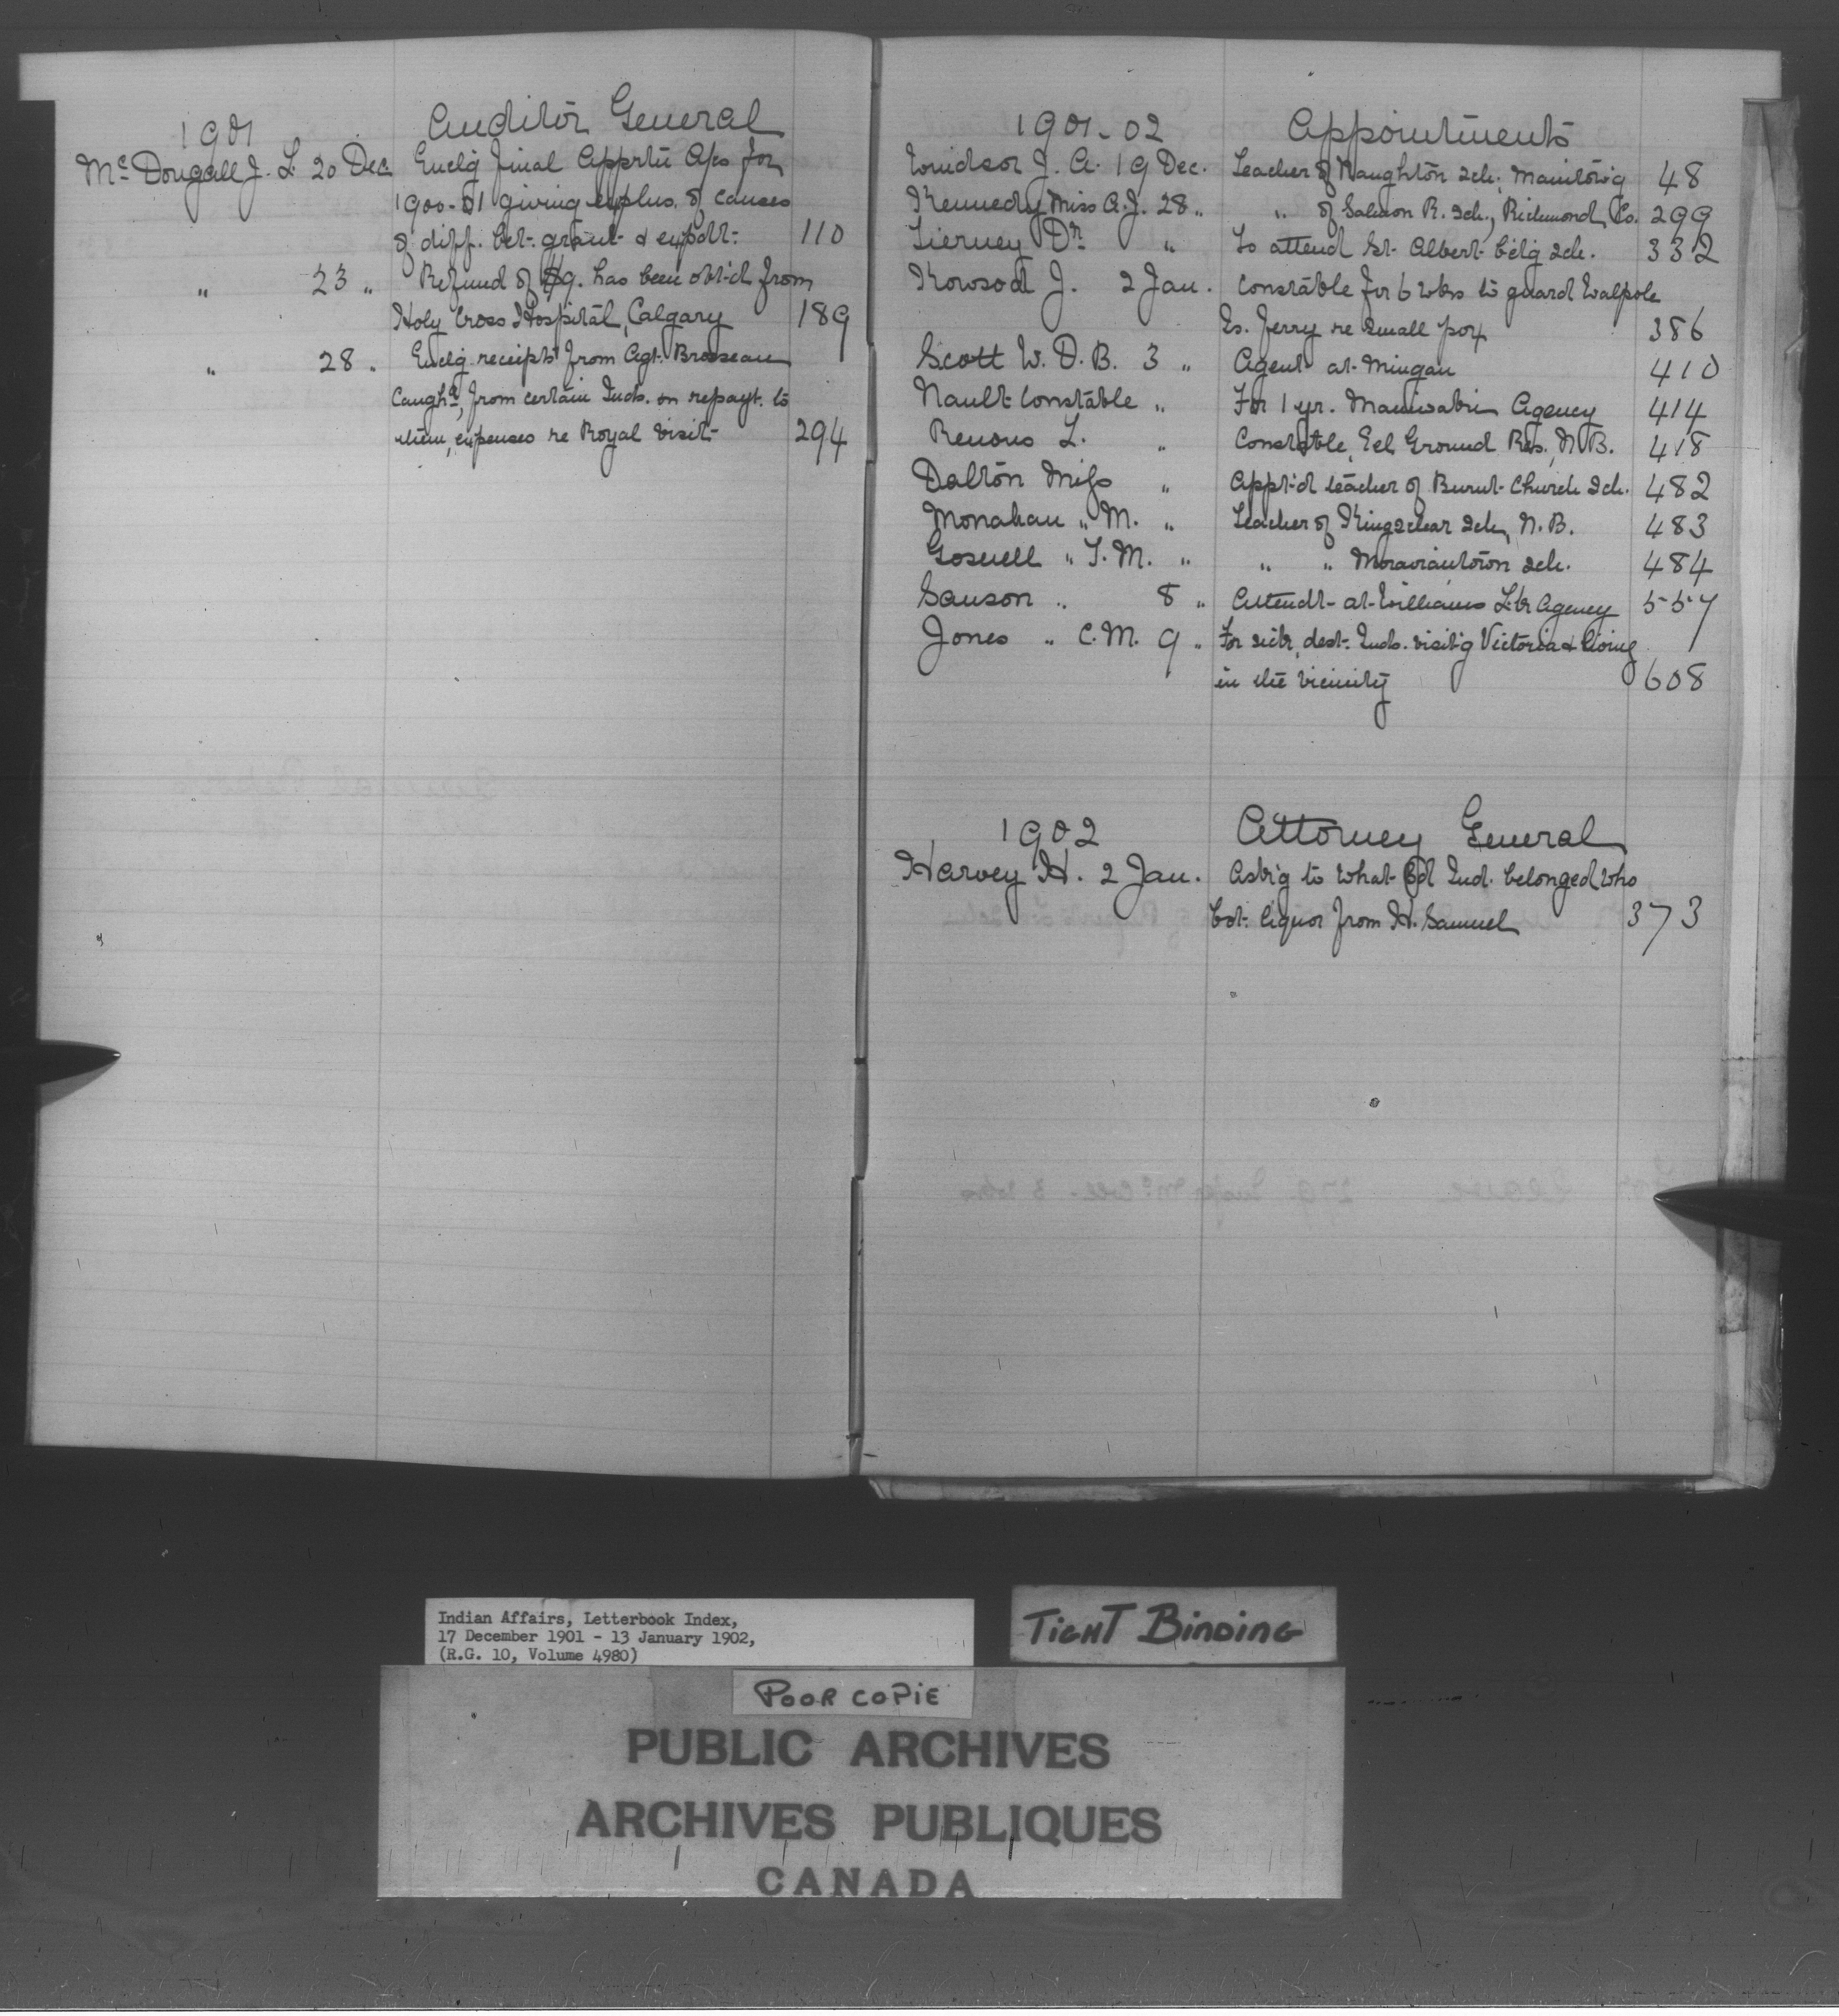 1901 Auditor General
McDougall J. L. 20 Dec. Enclg final Apprtn A/cs for
1900-01 giving explns. of causes
of diff. bet. grant & expdt. 110
" 23 " Refund of $9. has been obt'd from
Holy Cross Hospital, Calgary 189
" 28 " Enclg receipts from Agt. Brosseau
Caughª, from certain Inds. on repayt. to
them, expenses re Royal visit 294
1901-02 Appointments
Windsor J. A. 19 Dec. Teacher of Naughton Sch. Manitow'g 48
Kennedy Miss A. J. 28 " " of Salmon R. Sch., Richmond Co. 299
Tierney Dr. " To attend St. Albert b'd'g Sch. 332
Rowsod J. 2 Jan. Constable for 6 wks to guard Walpole
Is. Ferry re small pox 386
Scott W. D. B. 3 " Agent at Mingan 410
Nault Constable " For 1 yr. Maniwaki Agency 414
Renous L. " Constable, Eel Ground Res., N.B. 418
Dalton Miss " Appt'd teacher of Burnt Church Sch. 482
Monahan " M. " Teacher of Kingsclear Sch, N.B. 483
Gosnell " T. M. " " " Moraviantown Sch. 484
Sanson " 8 " Attendt at Williams Lk Agency 557
Jones " C. M. 9 " For sick, dest. Inds. visit'g Victoria & living
in the vicinity 608
1902 Attorney General
Harvey H. 2 Jan. Ask'g to what Bd Ind. belonged who
bot. liquor from H. Samuel 373
Indian Affairs, Letterbook Index,
17 December 1901 - 13 January 1902,
(R.G. 10, Volume 4980)
TIGHT BINDING
POOR COPIE
PUBLIC ARCHIVES
ARCHIVES PUBLIQUES
CANADA